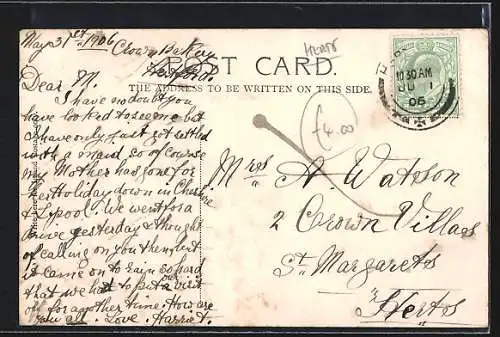 May 31st 1906
Crown Bakery
Hertford.
HERTS
POST CARD.
THE ADDRESS TO BE WRITTEN ON THIS SIDE.
10 30 AM
JU 1
06
£4.00
Dear M.
I have no doubt you
have looked to see me but
I have only just got settled
with a maid, so of course
my Mother has gone for
her Holiday down in Cheshire
& L'pool. We went for a
drive yesterday & thought
of calling on you then, but
it came on to rain so hard
that we had to put our visit
off for another time. How are
you all. Love. Harriet.
Mrs A. Watson
2 Crown Villas
St Margarets
Herts